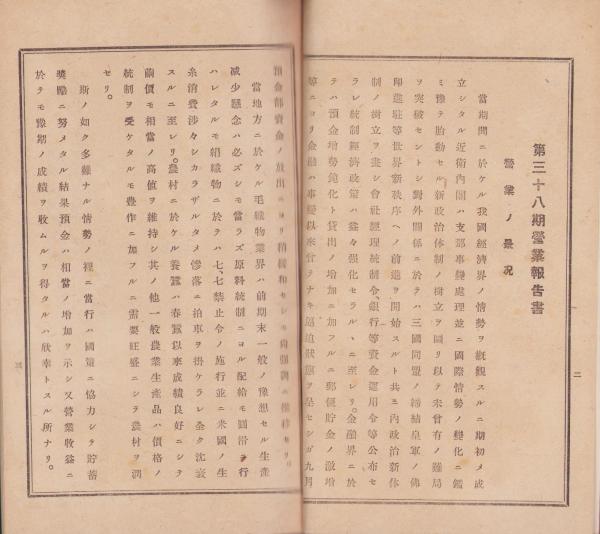 第三十八期營業報告書
營業ノ景況
當期間ニ於ケル我國經濟界ノ情勢ヲ概觀スルニ期初メ成
立シタル近衞内閣ハ支那事變處理並ニ國際情勢ノ變化ニ鑑
ミ豫テ胎動セル新政治體制ノ樹立ヲ圖リ以テ未曾有ノ難局
ヲ突破セントシ對外關係ニ於テハ三國同盟ノ締結皇軍ノ佛
印進駐等世界新秩序ヘノ前進ヲ開始スルト共ニ内政治新体
制ノ樹立ヲ畫シ會社經理統制令、銀行等資金運用令等公布セ
ラレ統制經濟政策ハ益々强化セラル、ニ至レリ。金融界ニ於
テハ預金增勢鈍化ト貸出ノ增加ニ加フルニ郵便貯金ノ激增
等ニヨリ金融ハ事變以來曾テナキ逼迫狀態ヲ呈セシガ九月
預金部資金ノ放出ニヨリ稍緩和セシモ尚强調ニ推移セリ。
當地方ニ於ケル毛織物業界ハ前期末一般ノ豫想セル生産
减少懸念ハ必ズシモ當ラズ原料統制ニヨル配給モ圓滑ヲ行
ハレタルモ絹織物ニ於テハ七、七禁止令ノ施行並ニ米國ノ生
糸消費渉々シカラザルタメ慘落ニ拍車ヲ掛ケラレ全ク沈衰
スルニ至レリ。農村ニ於ケル養蠶ハ春蠶以來成績良好ニシテ
繭價モ相當ノ高値ヲ維持シ其ノ他一般農業生産品ハ價格ノ
統制ヲ受ケタルモ豊作ニ加フルニ需要旺盛ニシテ農村ヲ潤
セリ。
斯ノ如ク多難ナル情勢ノ裡ニ當行ハ國策ニ協力シテ貯蓄
奬勵ニ努メタル結果預金ハ相當ノ增加ヲ示シ又營業收益ニ
於テモ豫期ノ成績ヲ收ムルヲ得タルハ欣幸トスル所ナリ。
二
三